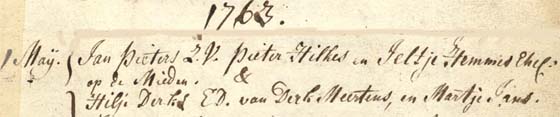 1763.
1 Maÿ. Jan Pieters Z. V. Pieter Hilkes en Jeltje Hemmes Ehel:
op de Mieden. &
Hilje Derks E D. van Derk Meertens, en Martje Jans.